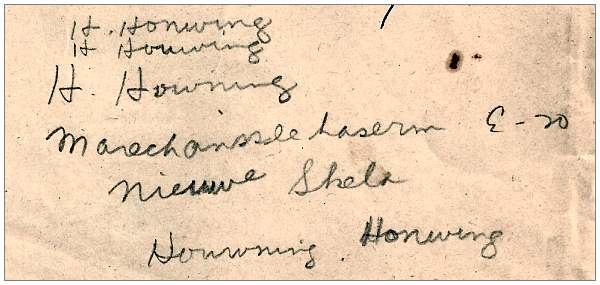 H. Honwing
H Houwing
H. Howning
Marechaussee kaserm E-20
Nieuwe Skela
Houwning. Honwing